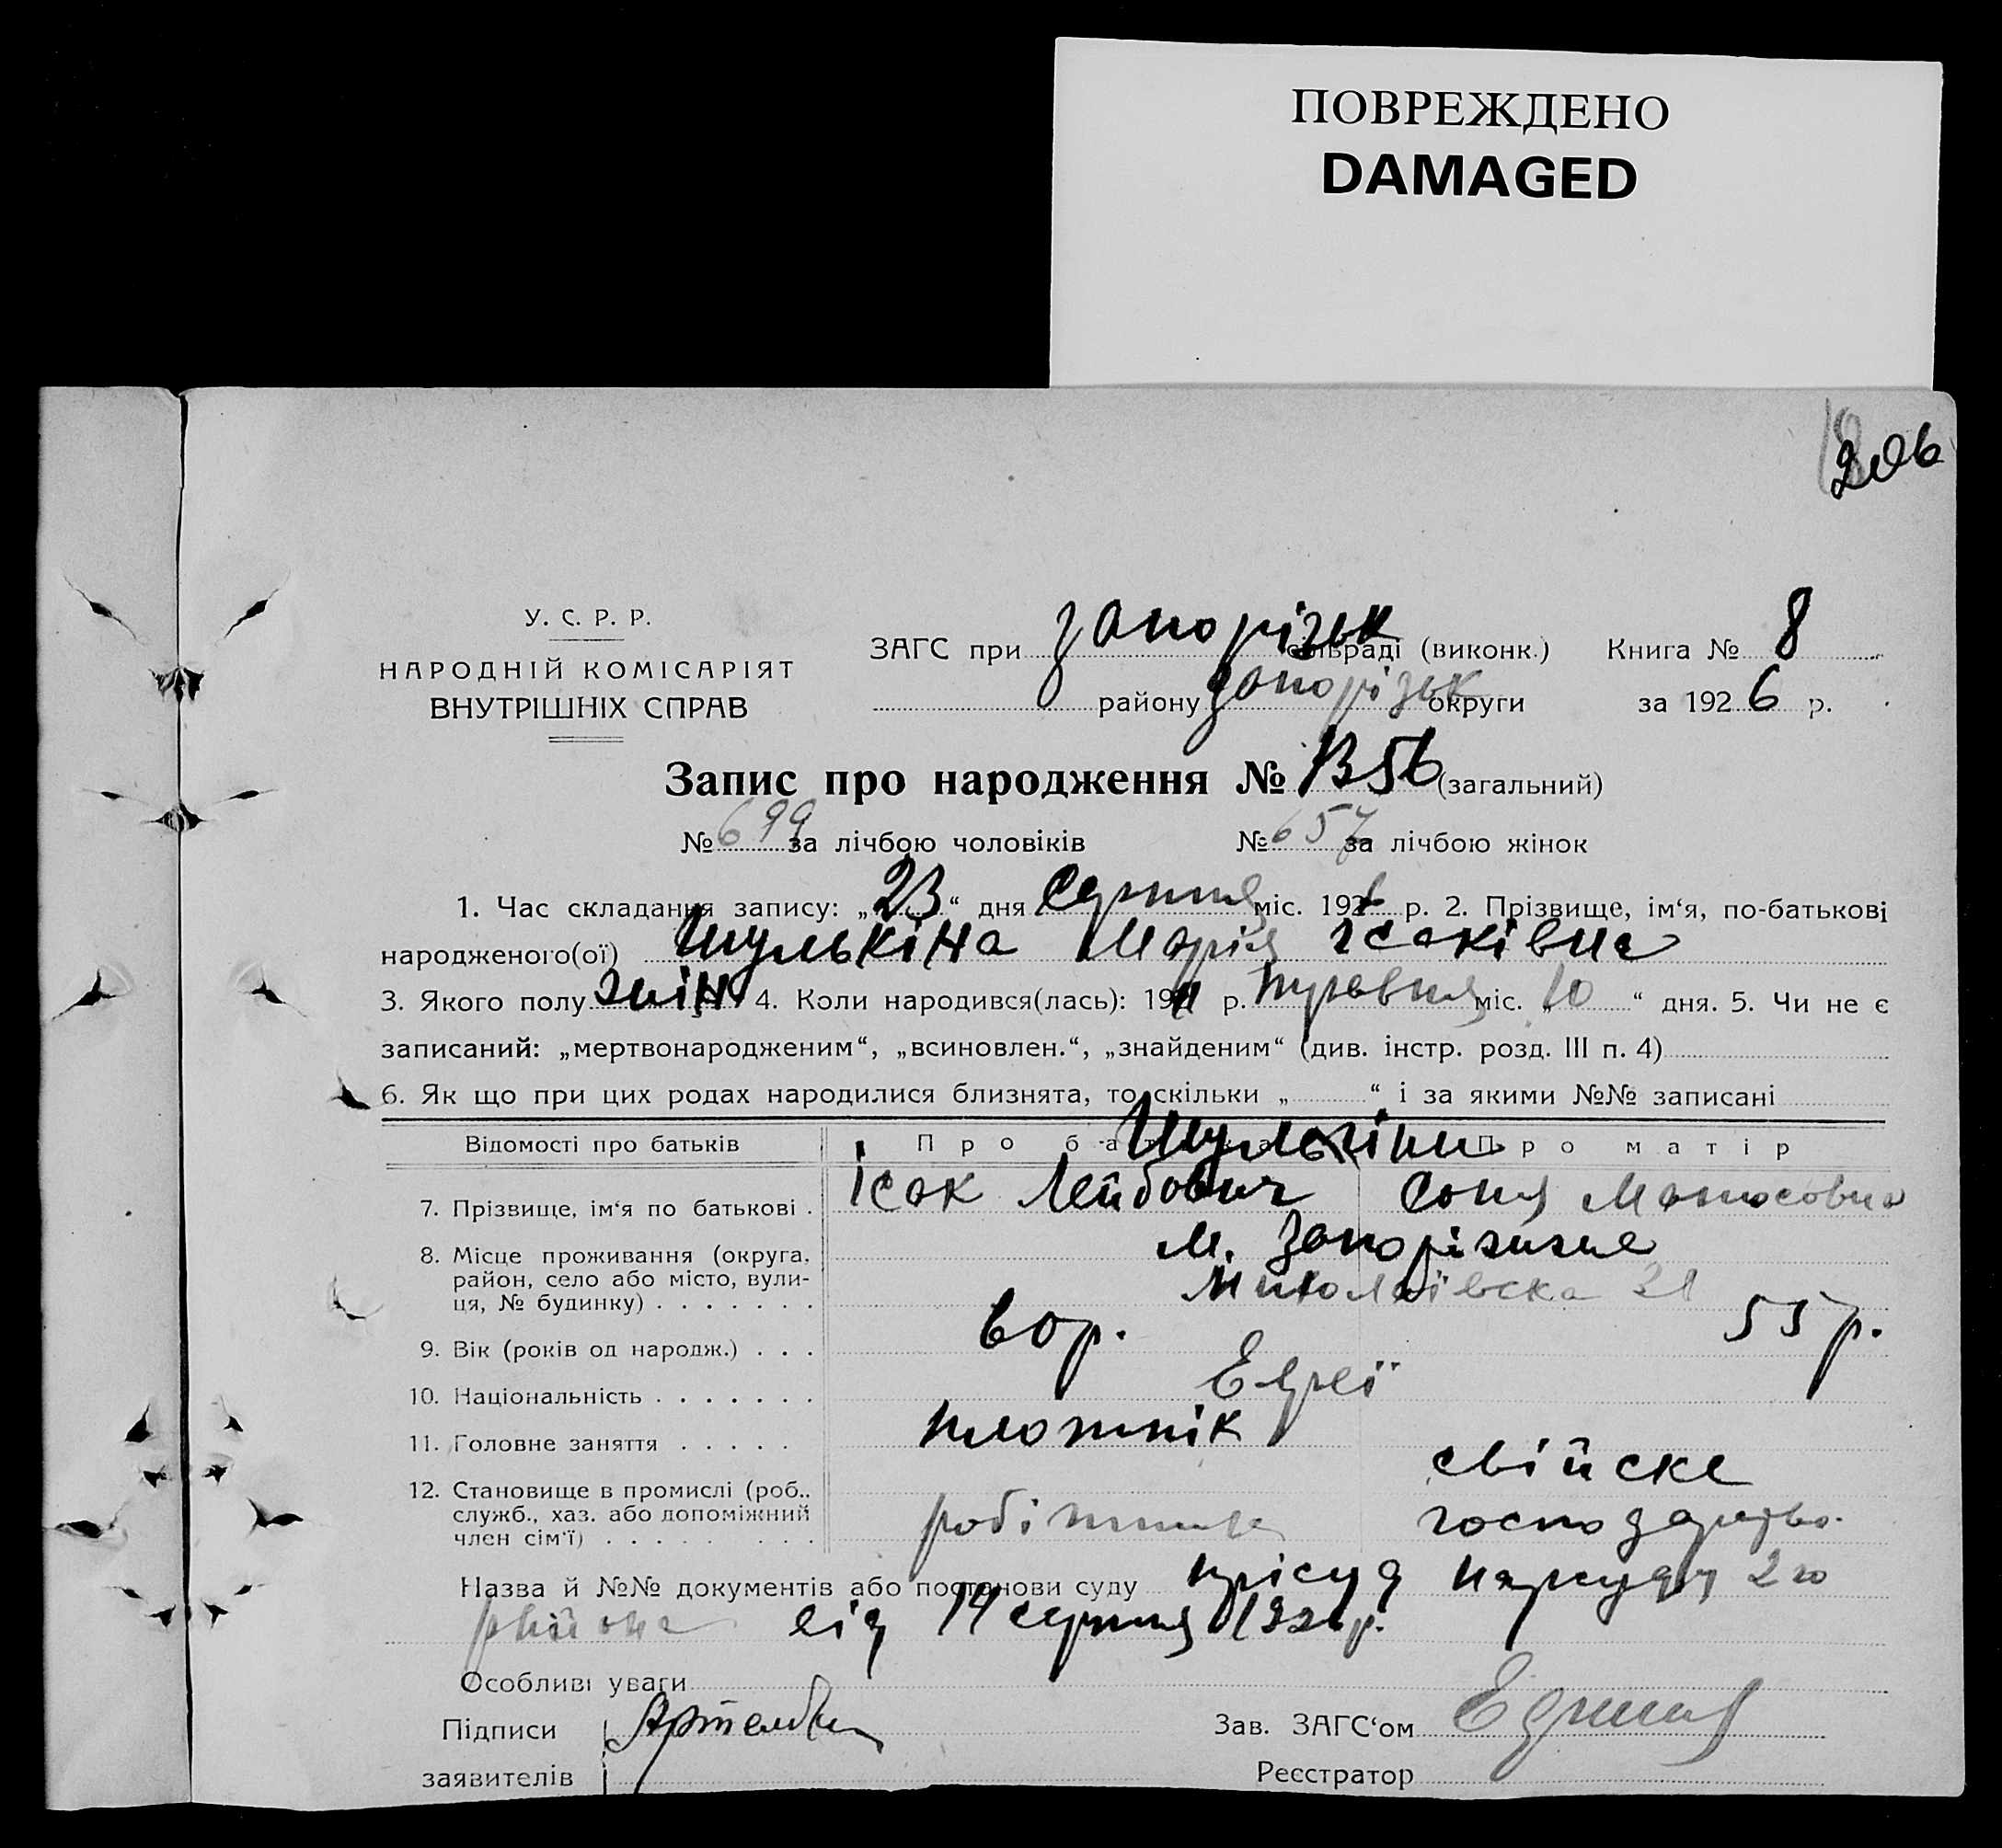 ПОВРЕЖДЕНО
DAMAGED
206
У. С. Р. Р.
НАРОДНІЙ КОМІСАРІЯТ
ВНУТРІШНІХ СПРАВ
ЗАГС при Запорізьк сільраді (виконк.) Книга № 8
району Запорізьк округи за 1926 р.
Запис про народження № 1356 (загальний)
№ 699 за лічбою чоловіків № 657 за лічбою жінок
1. Час складання запису: „23“ дня Серпня міс. 1926 р. 2. Прізвище, ім‘я, по-батькові
народженого(ої) Шулькіна Марія Ісаківна
3. Якого полу жін 4. Коли народився(лась): 19 р. міс. „10“ дня. 5. Чи не є
записаний: „мертвонародженим“, „всиновлен.“, „знайденим“ (див. інстр. розд. III п. 4)
6. Як що при цих родах народилися близнята, то скільки „ “ і за якими №№ записані
Відомості про батьків Про батька Про матір
Шулькіни
7. Прізвище, ім‘я по батькові . Ісак Лейбович Соня Маносовна
8. Місце проживання (округа, район, село або місто, вулиця, № будинку) . . . . . . . М. Запоріжжє
Миколаївска 31
9. Вік (років од народж.) . . . 60р. 55 р.
10. Національність . . . . . . . Евреї
11. Головне заняття . . . . . плотнік свійске
12. Становище в промислі (роб., служб., хаз. або допоміжний член сім‘ї) . . . . . . . . . робітник господарство.
Назва й №№ документів або постанови суду прісуд Нарсуду 2го
району від 14 серпня 1926р.
Особливі уваги
Підписи
Зав. ЗАГС‘ом
заявителів
Реєстратор